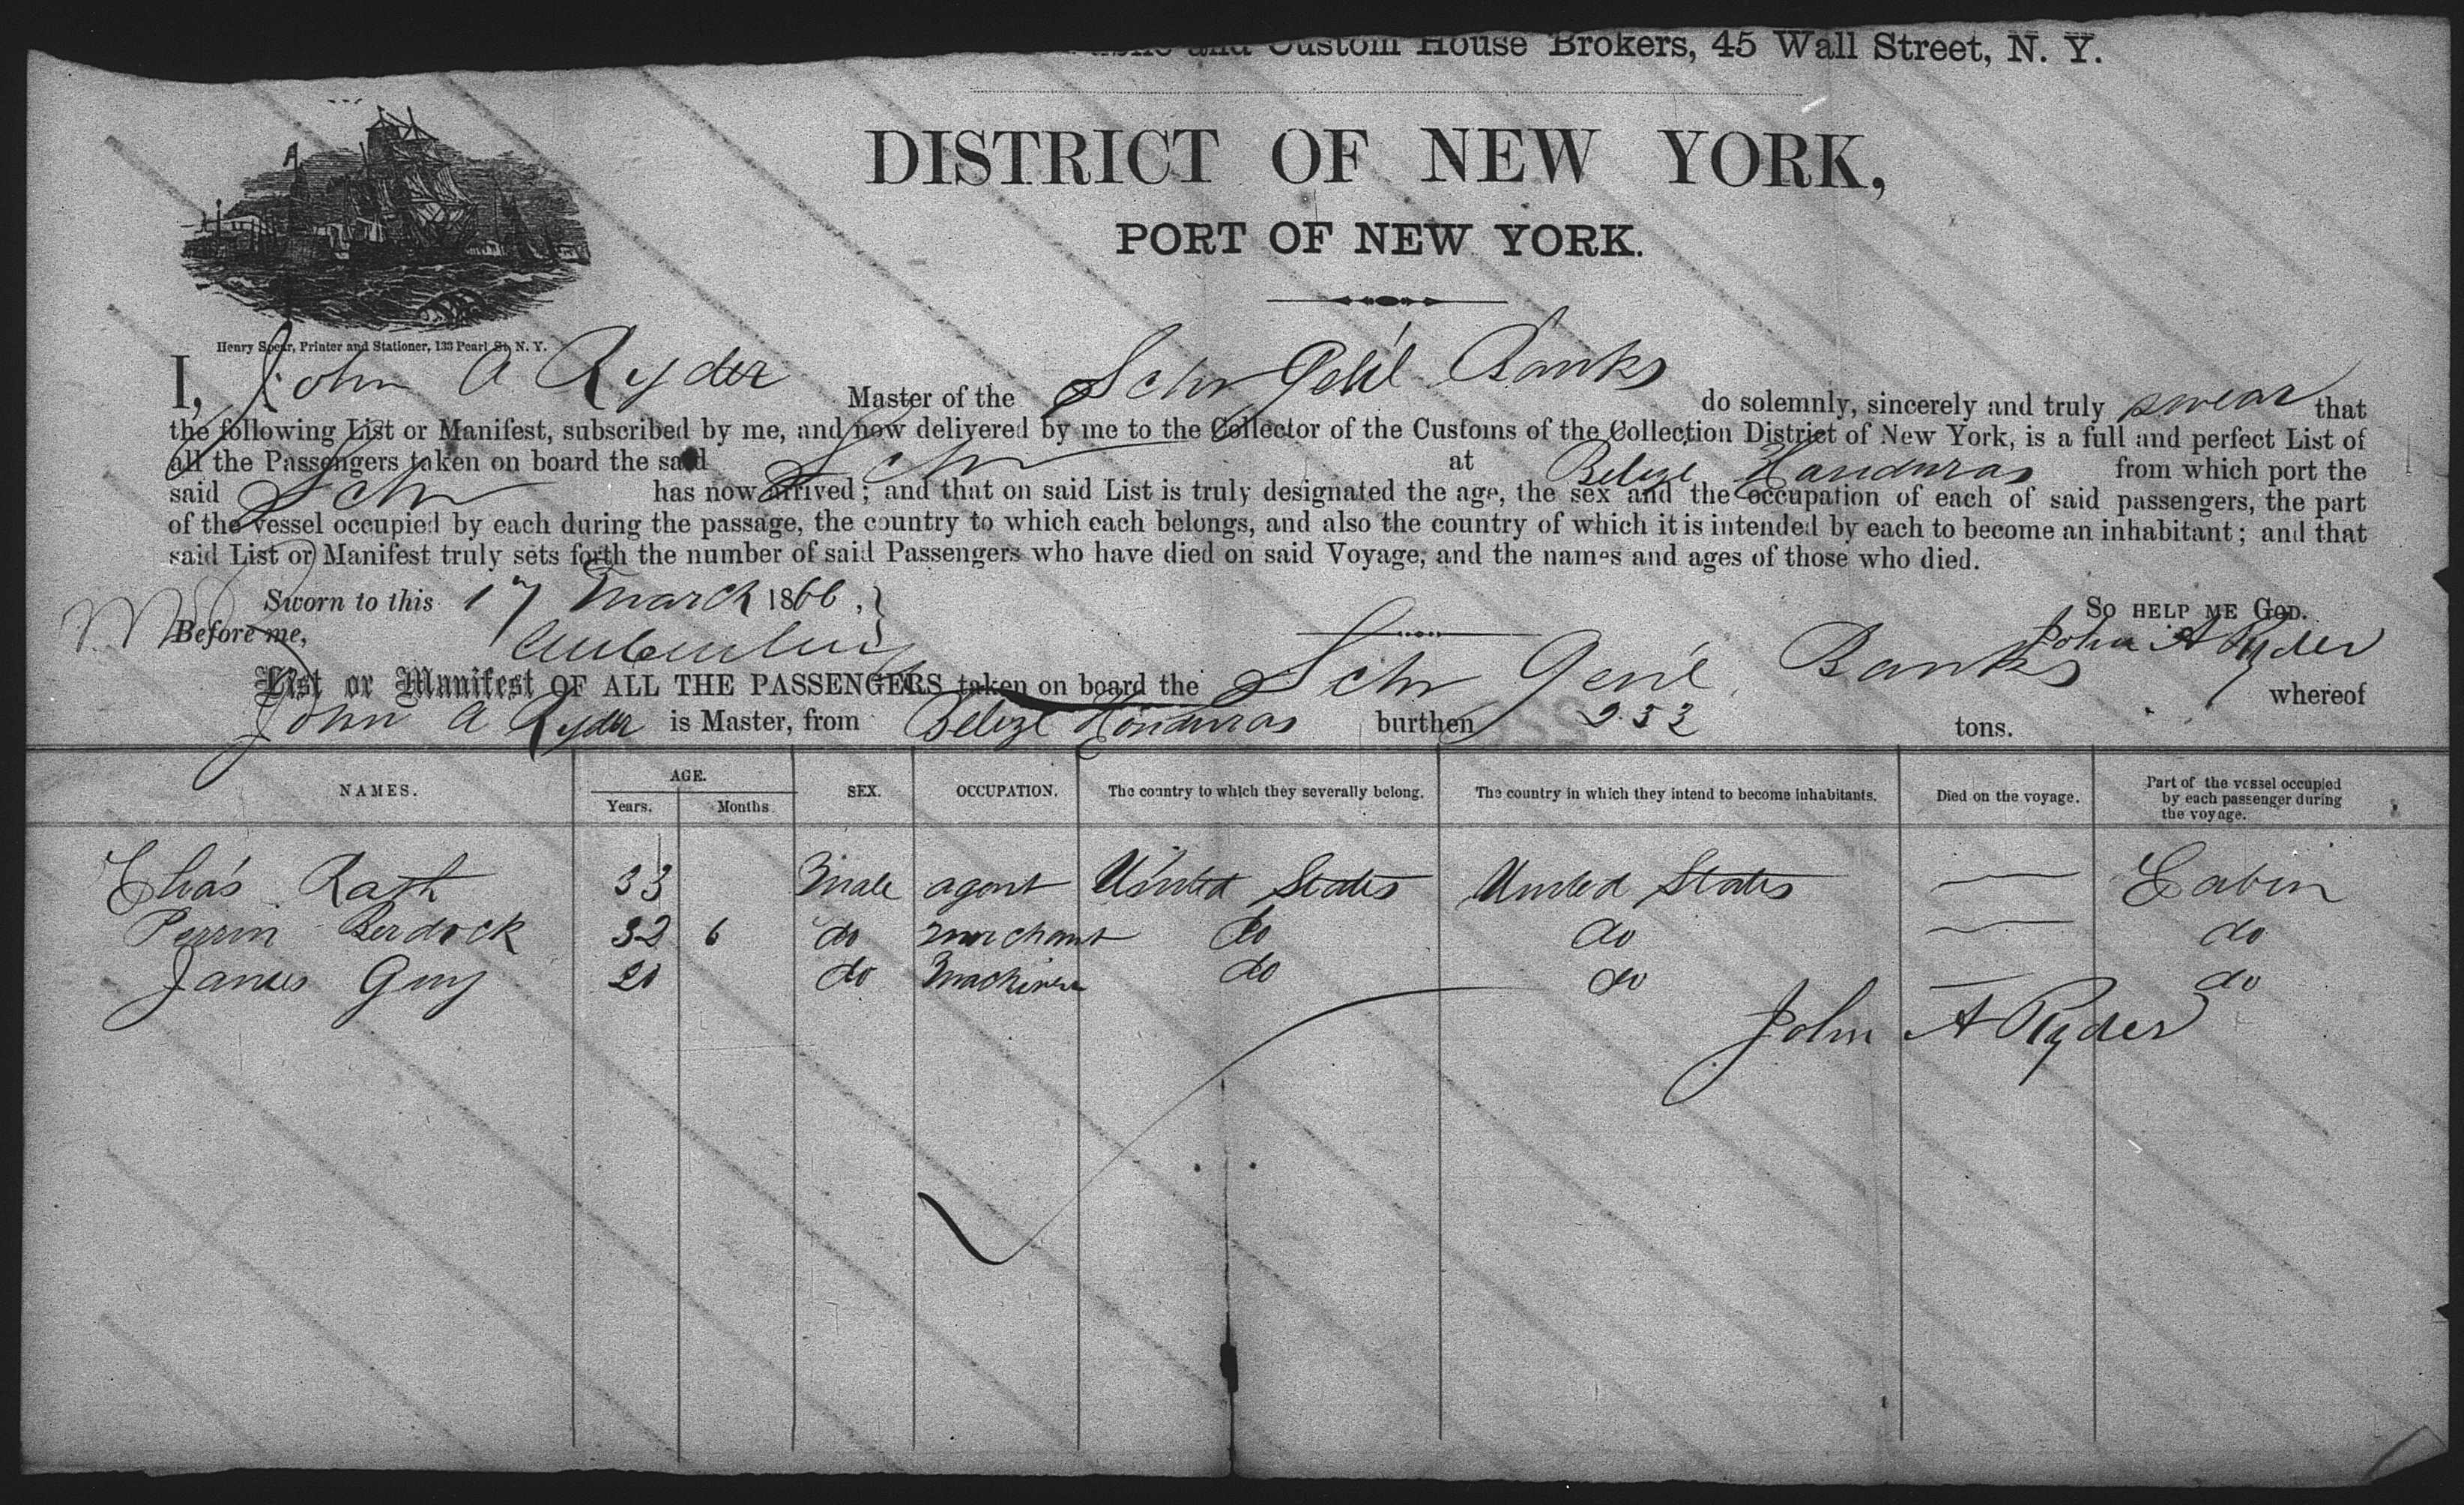 and Custom House Brokers, 45 Wall Street, N. Y.
DISTRICT OF NEW YORK,
PORT OF NEW YORK.
Henry Spear, Printer and Stationer, 133 Pearl St. N. Y.
I, John A Ryder Master of the Schr Gen'l Banks do solemnly, sincerely and truly swear that
the following List or Manifest, subscribed by me, and now delivered by me to the Collector of the Customs of the Collection District of New York, is a full and perfect List of
all the Passengers taken on board the said Schr at Belize Honduras from which port the
said Schr has now arrived; and that on said List is truly designated the age, the sex and the occupation of each of said passengers, the part
of the vessel occupied by each during the passage, the country to which each belongs, and also the country of which it is intended by each to become an inhabitant; and that
said List or Manifest truly sets forth the number of said Passengers who have died on said Voyage, and the names and ages of those who died.
Sworn to this 17 March 1866, }
So help me God.
Before me,
John A Ryder
List or Manifest OF ALL THE PASSENGERS taken on board the Schr Gen'l Banks whereof
John A Ryder is Master, from Belize Honduras burthen 253 tons.
NAMES. AGE. Years. Months. SEX. OCCUPATION. The country to which they severally belong. The country in which they intend to become inhabitants. Died on the voyage. Part of the vessel occupied by each passenger during the voyage.
Elias Rath 33 Male agent United States United States — Cabin
Perrin Berdock 32 6 do merchant do do — do
James Guy 20 do do do — do
John A Ryder